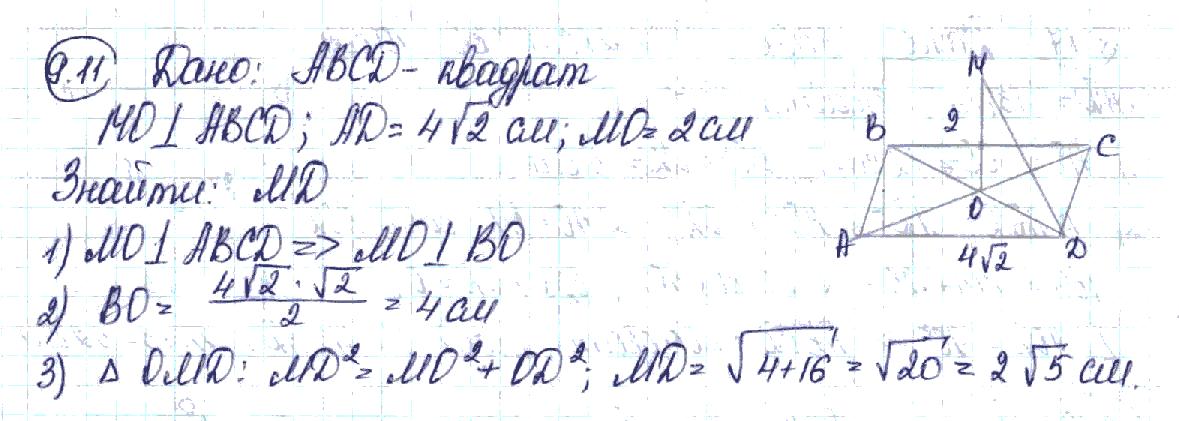 9.11 Дано: ABCD - квадрат
MO ⊥ ABCD; AD = 4√2 см; MO = 2 см
Знайти: MD
1) MO ⊥ ABCD => MO ⊥ BO
2) BO = (4√2 · √2)/2 = 4 см
3) Δ OMD: MD² = MO² + OD²; MD = √(4+16) = √20 = 2√5 см.
M
B 2 C
O
A D
4√2